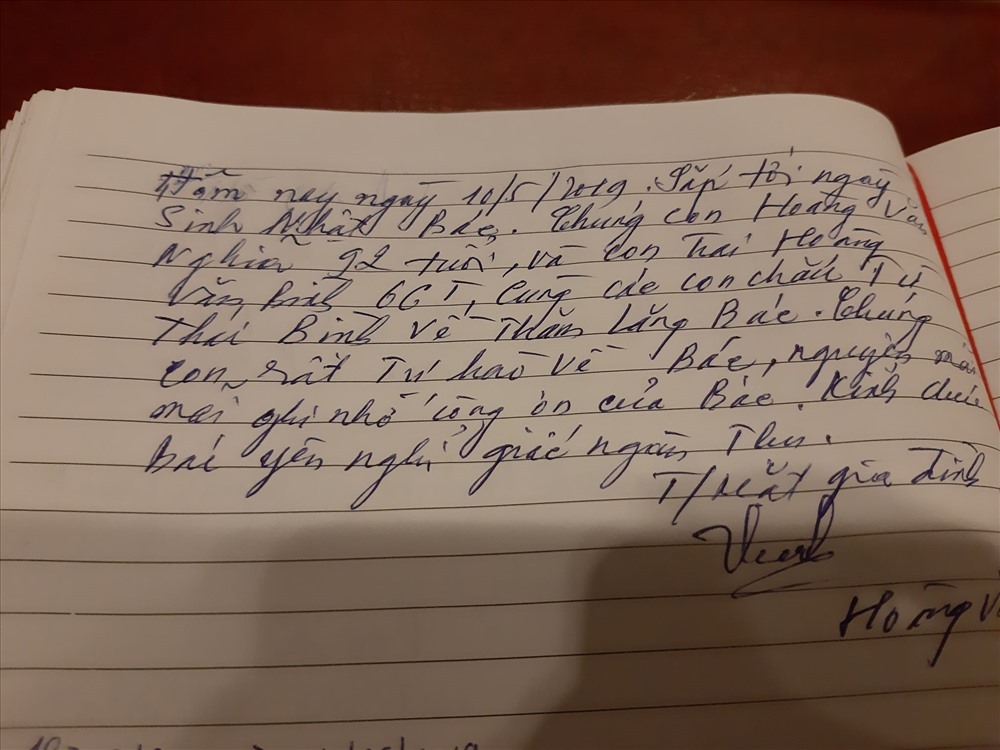 Hôm nay ngày 10/5/2019. Sắp tới ngày
Sinh Nhật Bác. Chúng con Hoàng Văn
Nghĩa 92 tuổi, và con Trai Hoàng
Văn Bình 66T, Cùng các con cháu Từ
Thái Bình Về Thăm Lăng Bác. Chúng
con rất Tự hào Về Bác, nguyện mãi
mãi ghi nhớ công ơn của Bác. Kính chúc
Bác yên nghỉ giấc ngàn Thu.
T/Mặt gia đình
Hoàng V